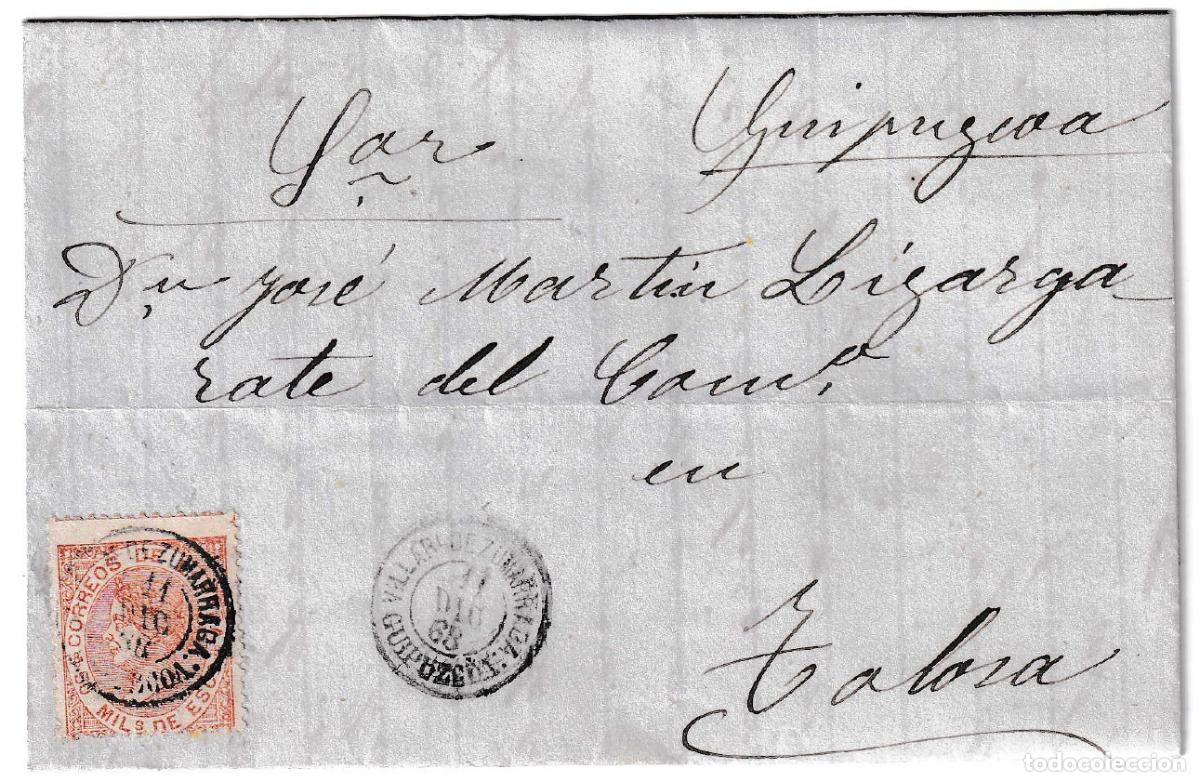 Sor Guipuzcoa
Dn José Martin Lizarga-
rate del Comº
en
Tolosa
CORREOS DE
50 MILS DE ESC
DE ZUMARRAGA.
11
DIC
68
VILLARL DE ZUMARRAGA.
11
DIC
68
GUIPUZCOA.
todocoleccion